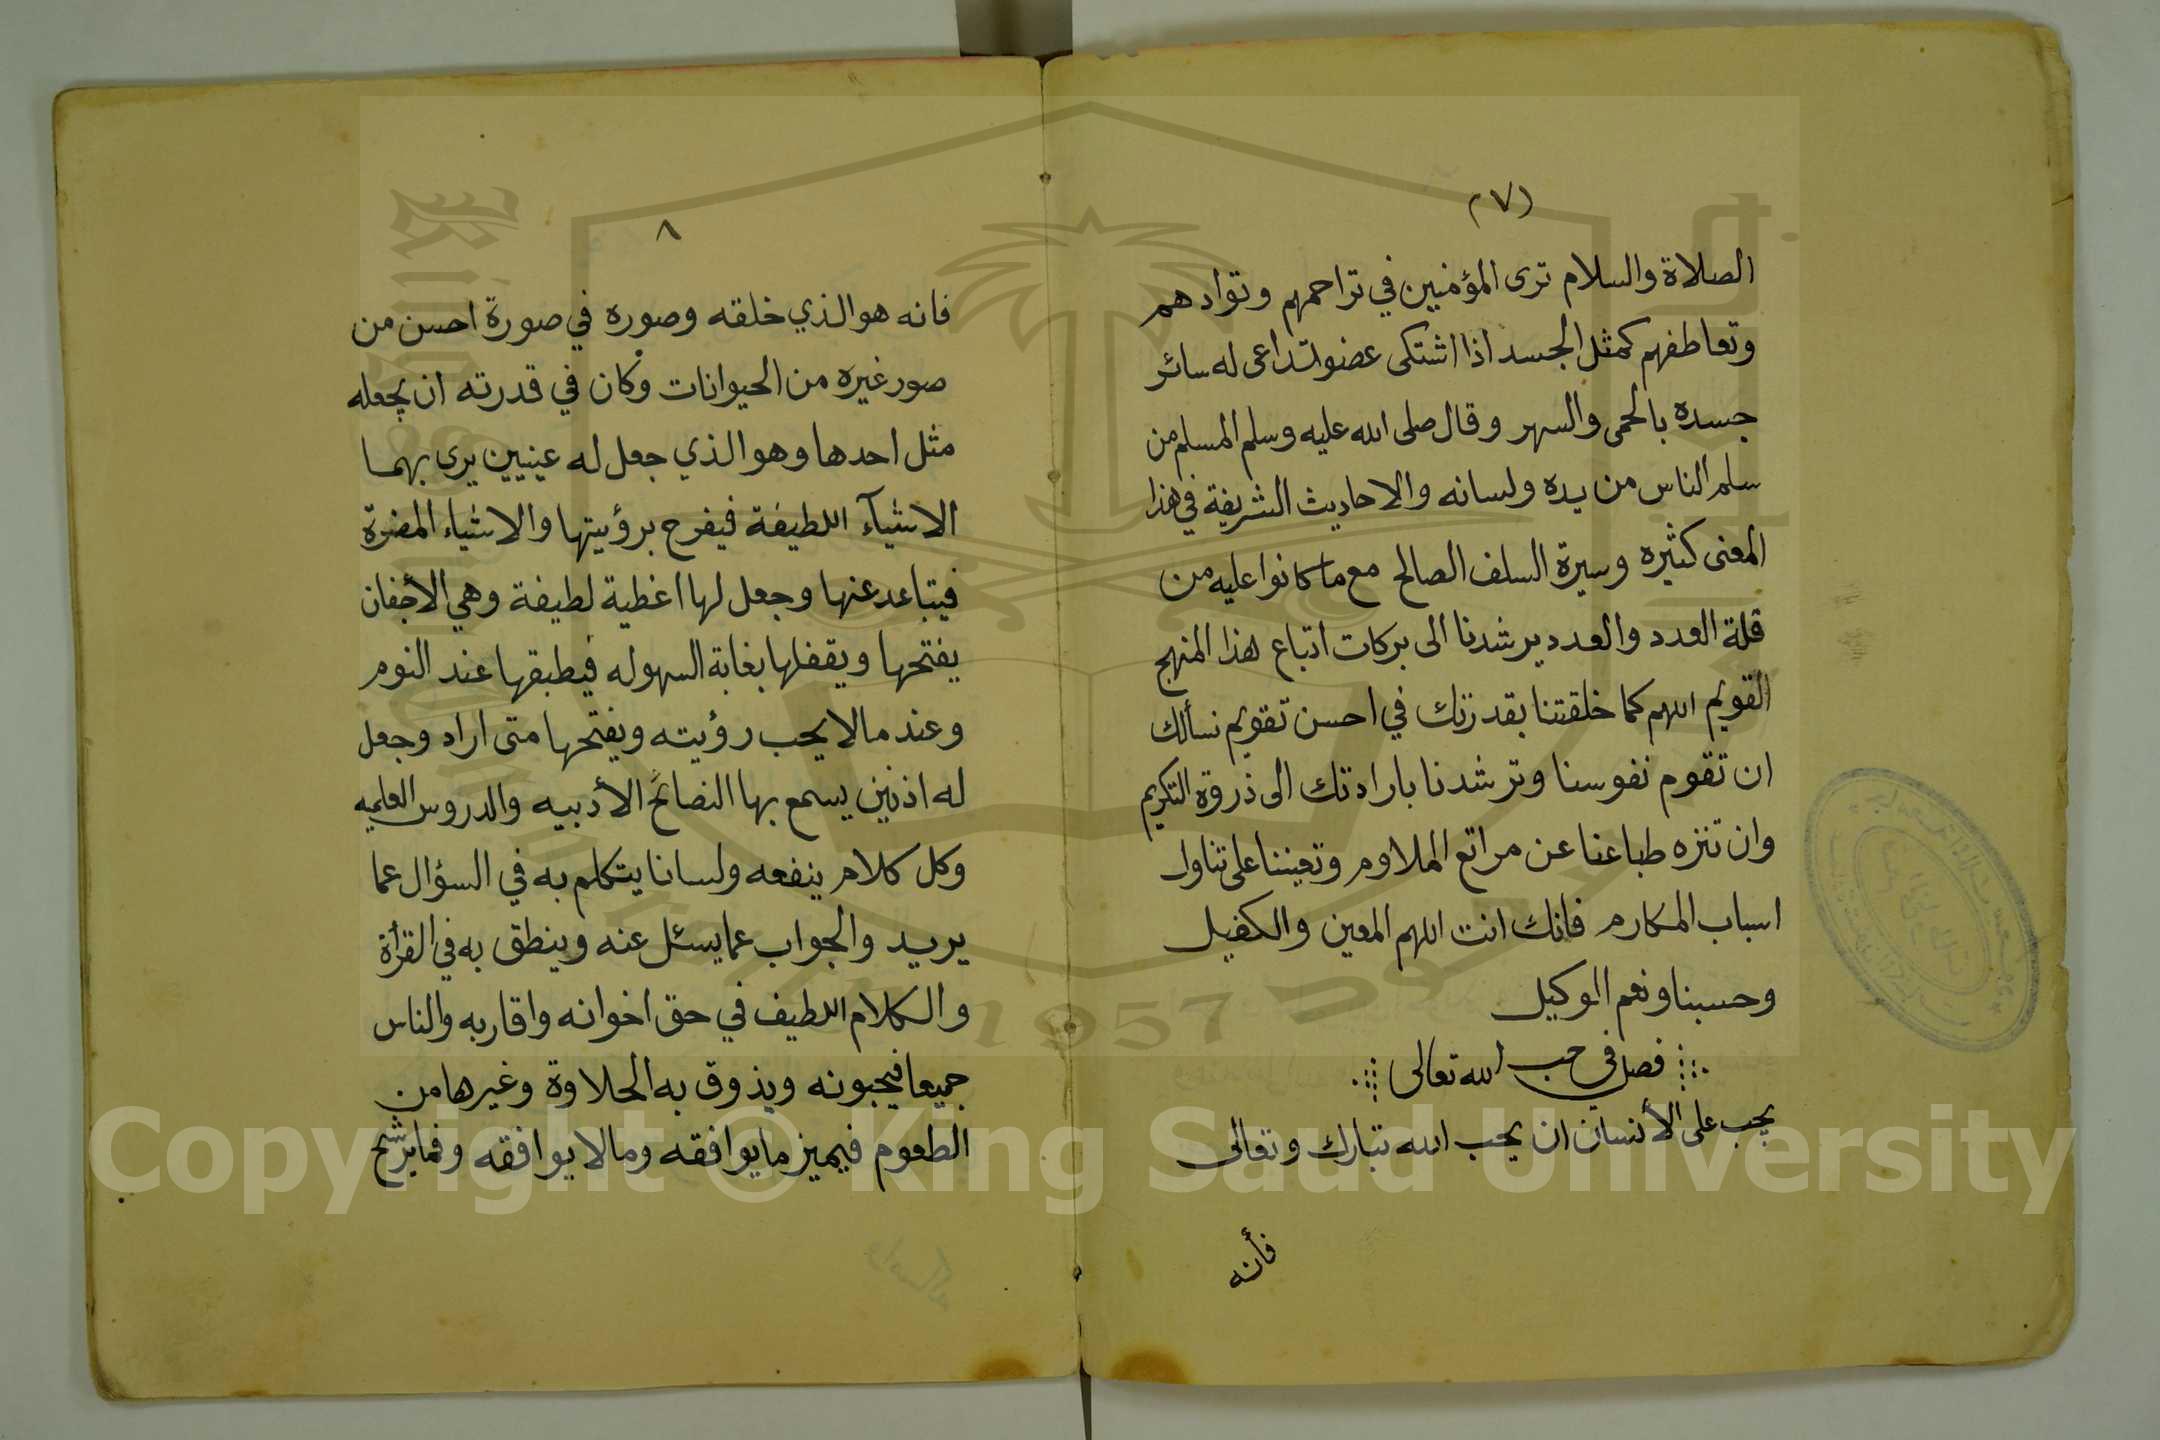 (٧)
الصلاة والسلام ترى المؤمنين في تراحمهم وتوادهم
وتعاطفهم كمثل الجسد اذا اشتكى عضو تداعى له سائر
جسده بالحمى والسهر وقال صلى الله عليه وسلم المسلم من
سلم الناس من يده ولسانه والاحاديث الشريفة في هذا
المعنى كثيره وسيرة السلف الصالح مع ما كانوا عليه من
قلة العدد والعدد يرشدنا الى بركات اتباع هذا المنهج
القويم اللهم كما خلقتنا بقدرتك في احسن تقويم نسألك
ان تقوم نفوسنا وترشدنا بارادتك الى ذروة التكريم
وان تنزه طباعنا عن مراتع الملاوم وتعيننا على تناول
اسباب المكارم فانك انت اللهم المعين والكفيل
وحسبنا ونعم الوكيل
فصل في حب الله تعالى
يجب على الأنسان ان يحب الله تبارك وتعالى
فأنه
٨
فانه هو الذي خلقه وصوره في صورة احسن من
صور غيره من الحيوانات وكان في قدرته ان يجعله
مثل احدها وهو الذي جعل له عينيين يرى بهما
الاشيآء اللطيفة فيفرح برؤيتها والاشياء المضرة
فيتباعد عنها وجعل لها اغطية لطيفة وهي الأجفان
يفتحها ويقفلها بغاية السهوله فيطبقها عند النوم
وعند مالا يحب رؤيته ويفتحها متى اراد وجعل
له اذنين يسمع بها النصائح الأدبيه والدروس العلميه
وكل كلام ينفعه ولسانا يتكلم به في السؤال عما
يريد والجواب عما يسئل عنه وينطق به في القرأة
والكلام اللطيف في حق اخوانه واقاربه والناس
جميعا فيحبونه ويذوق به الحلاوة وغيرها من
الطعوم فيميز ما يوافقه ومالا يوافقه وفما يرشح
Copyright © King Saud University
1957